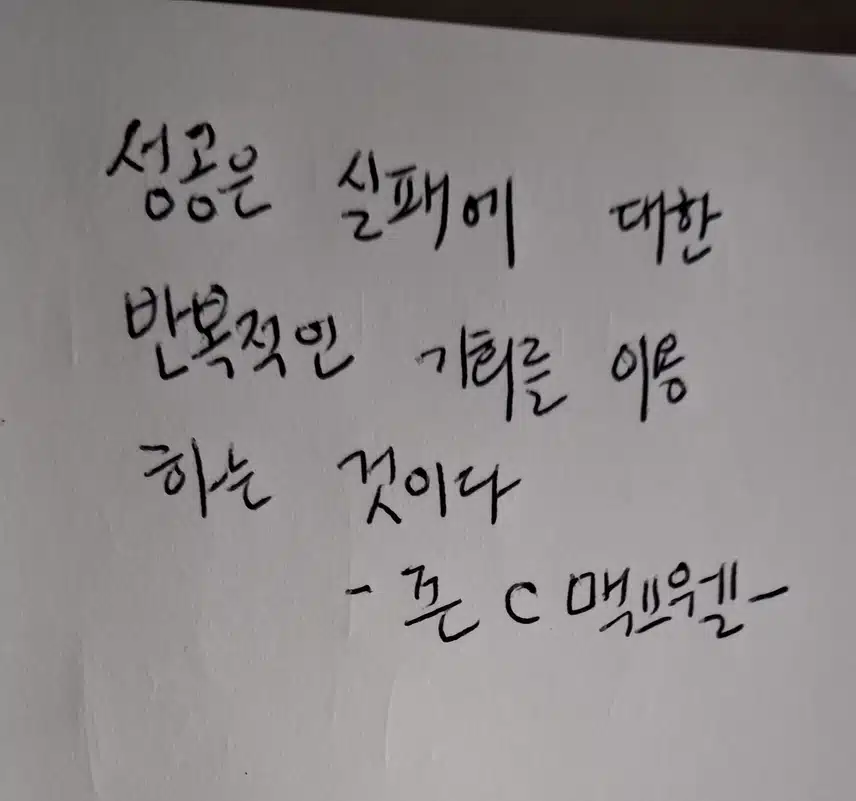 성공은 실패에 대한
반복적인 기회를 이용
하는 것이다
- 죤 C 맥스웰 -